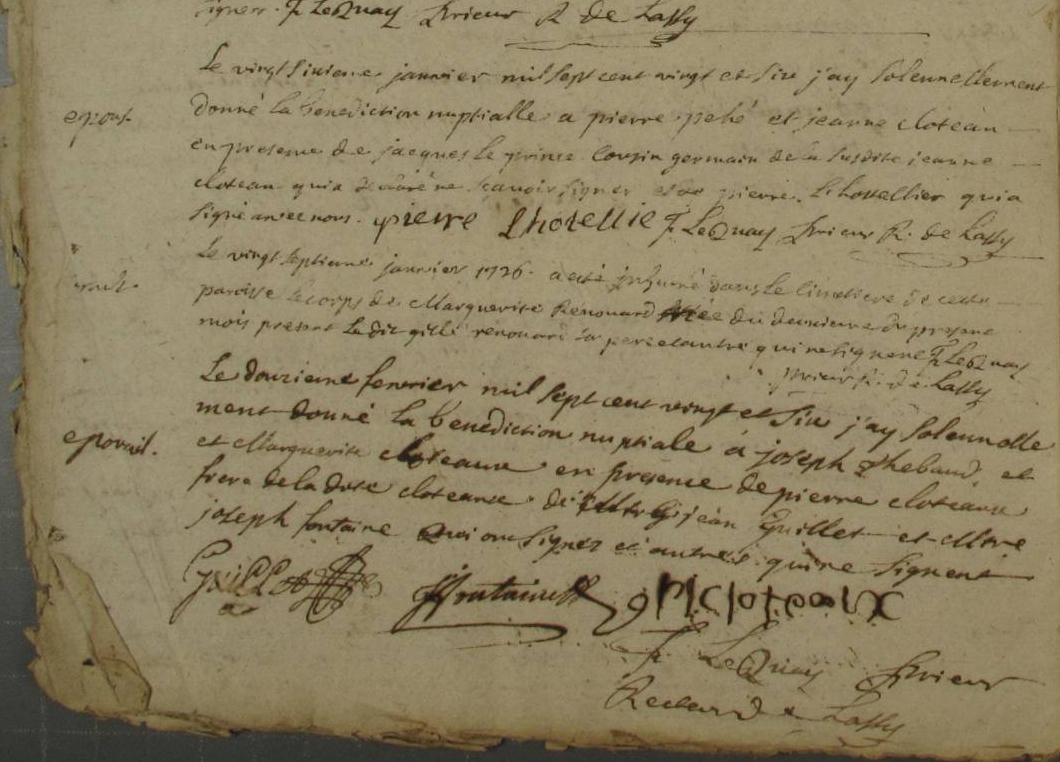 signer. F. LeQuay Prieur R. de Lassy
Le vingt sixieme janvier mil sept cent vingt et six j'ay solennellement
epous.
donné la benediction nuptialle a pierre pehé et jeanne cloteau
en presence de jacques le prince Cousin germain de la susdite jeanne
cloteau qui a declaré ne scavoir signer et de pierre Lhotellier qui a
signé avec nous. pierre Lhotellie F. LeQuay Prieur R. de Lassy
Le vingt septieme janvier 1726. a eté inhumé dans le cimetiere de cette
paroisse le corps de Marguerite Renouard du deuxieme du present
mois present Le dit gille renouard son pere et autre qui ne signent F. LeQuay
Prieur R. de Lassy
Le douzieme fevrier mil sept cent vingt et six j'ay solennelle
ment donné la benediction nuptiale á joseph thebaud et
epousail.
et Marguerite cloteaux en presence de pierre cloteaux
frere de la dite cloteaux de jean Guillet et
joseph fontaine Qui ont signez et autres qui ne signent
Guillet JFontaine P cloteaux
F. LeQuay Prieur
Recteur de Lassy